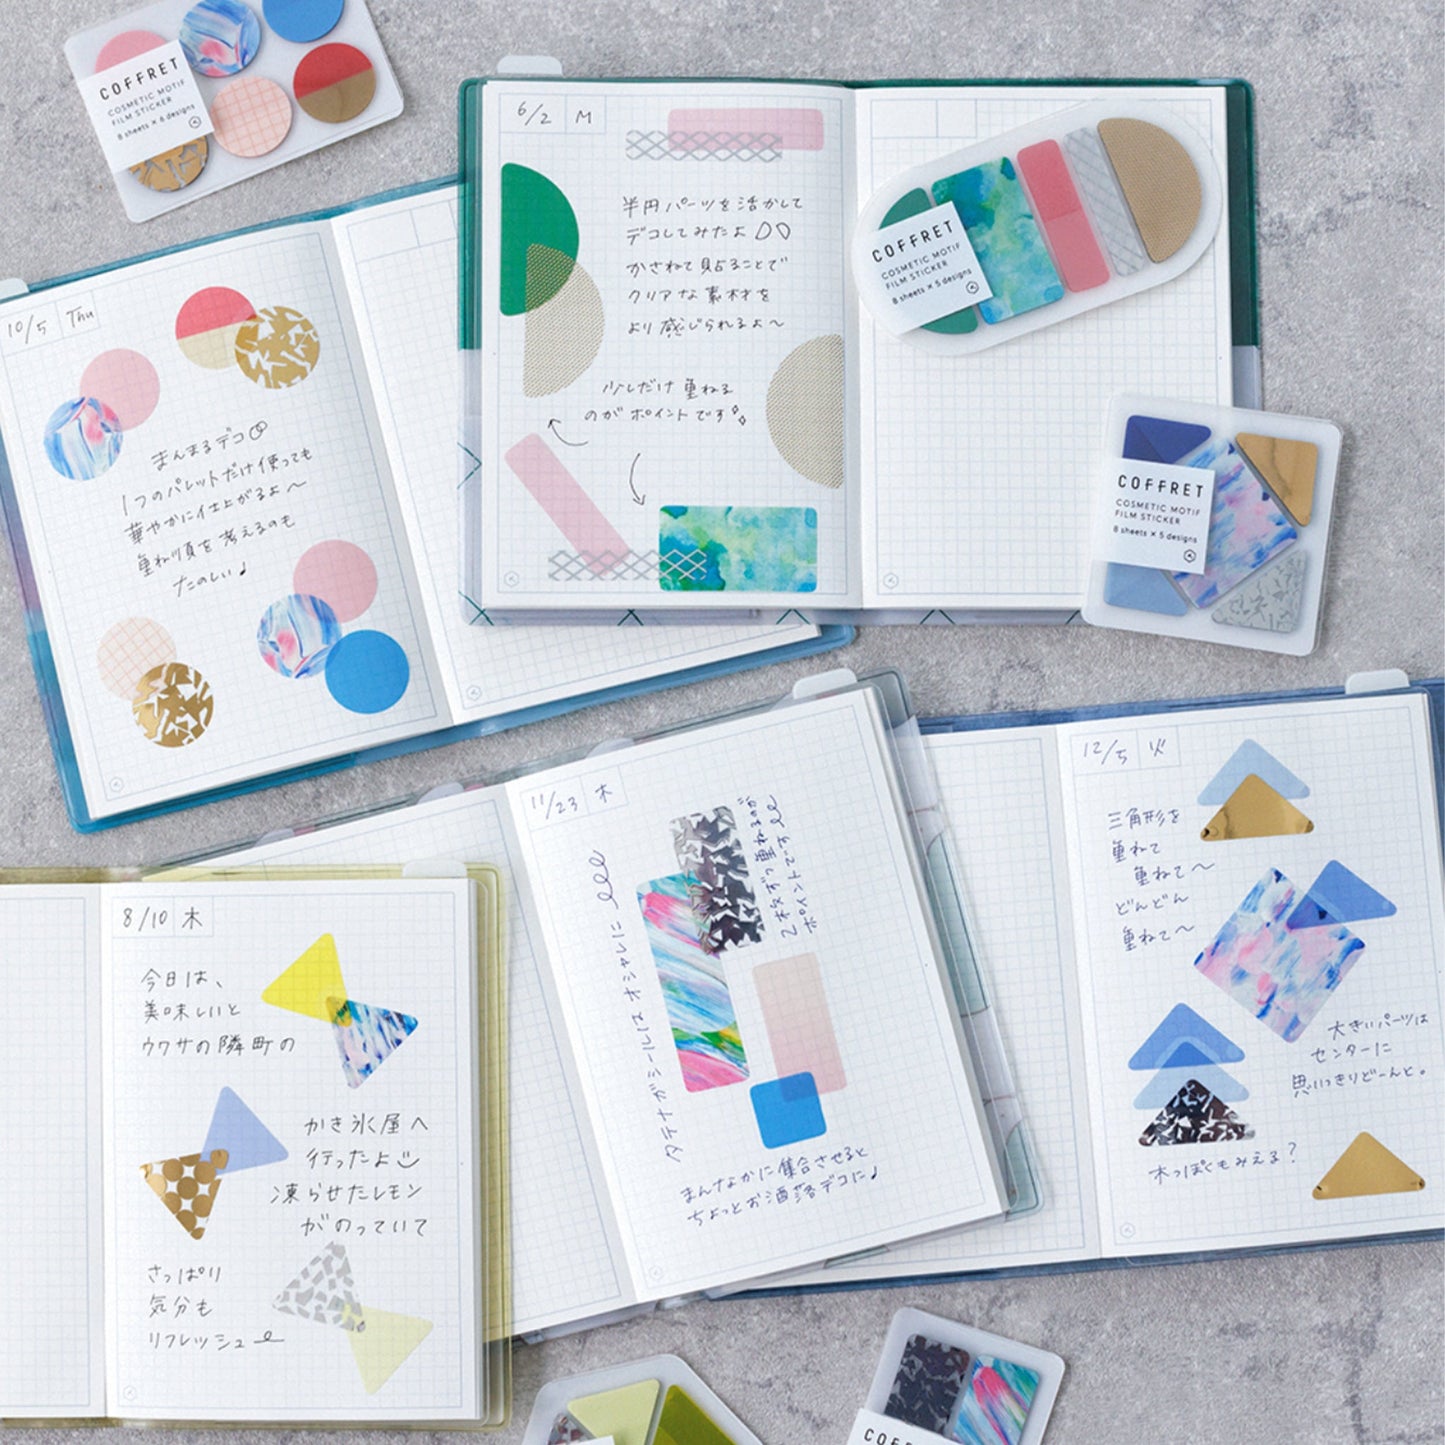 COFFRET
COSMETIC MOTIF
FILM STICKER
8 sheets × 6 designs
10/5 Thu
まんまるデコ
1つのパレットだけ使っても
華やかに仕上がるよ〜
重ね順を考えるのも
たのしい♪
6/2 M
半円パーツを活かして
デコしてみたよ
かさねて貼ることで
クリアな素材を
より感じられるよ〜
少しだけ重ねる
のがポイントです
COFFRET
COSMETIC MOTIF
FILM STICKER
8 sheets × 5 designs
COFFRET
COSMETIC MOTIF
FILM STICKER
8 sheets × 5 designs
8/10 木
今日は、
美味しいと
ウワサの隣町の
かき氷屋へ
行ったよ
凍らせたレモン
がのっていて
さっぱり
気分も
リフレッシュ
11/23 木
タテナガシールはオシャレに
2枚ずつ重ねるのが
ポイントです
まんなかに集合させると
ちょっとお洒落デコに♪
12/5 火
三角形を
重ねて
重ねて〜
どんどん
重ねて〜
大きいパーツは
センターに
思いっきりどーんと。
木っぽくもみえる?
COFFRET